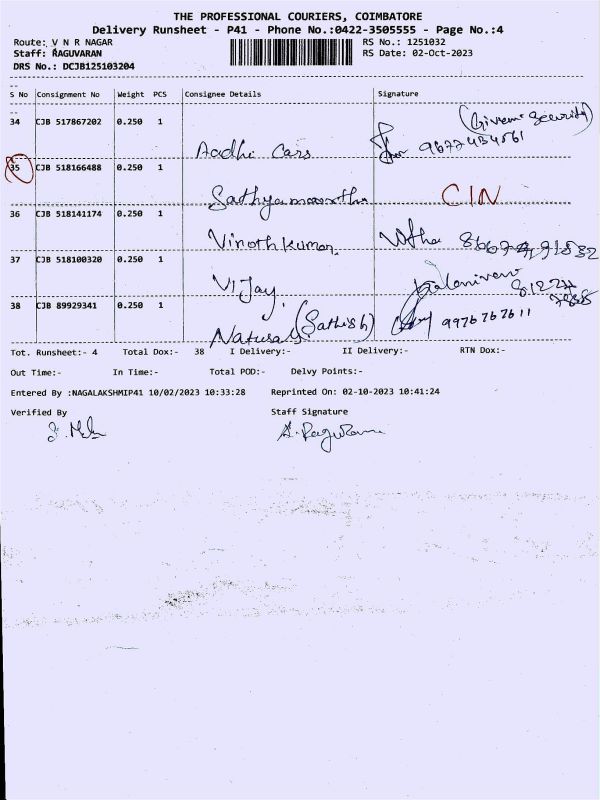 THE PROFESSIONAL COURIERS, COIMBATORE
Delivery Runsheet - P41 - Phone No.:0422-3505555 - Page No.:4
Route: V N R NAGAR RS No.: 1251032
Staff: RAGUVARAN RS Date: 02-Oct-2023
DRS No.: DCJB125103204
S No Consignment No Weight PCS Consignee Details Signature
34 CJB 517867202 0.250 1 (Given Security)
Aadhi Cars 9677434561
35 CJB 518166488 0.250 1
Sathyamoorthi CIN
36 CJB 518141174 0.250 1
Vinothkumar
37 CJB 518100320 0.250 1
Vijay
38 CJB 89929341 0.250 1 (Sathish) 9976767611
Naturals
Tot. Runsheet:- 4 Total Dox:- 38 I Delivery:- II Delivery:- RTN Dox:-
Out Time:- In Time:- Total POD:- Delvy Points:-
Entered By :NAGALAKSHMIP41 10/02/2023 10:33:28 Reprinted On: 02-10-2023 10:41:24
Verified By Staff Signature
A. Raguvaran